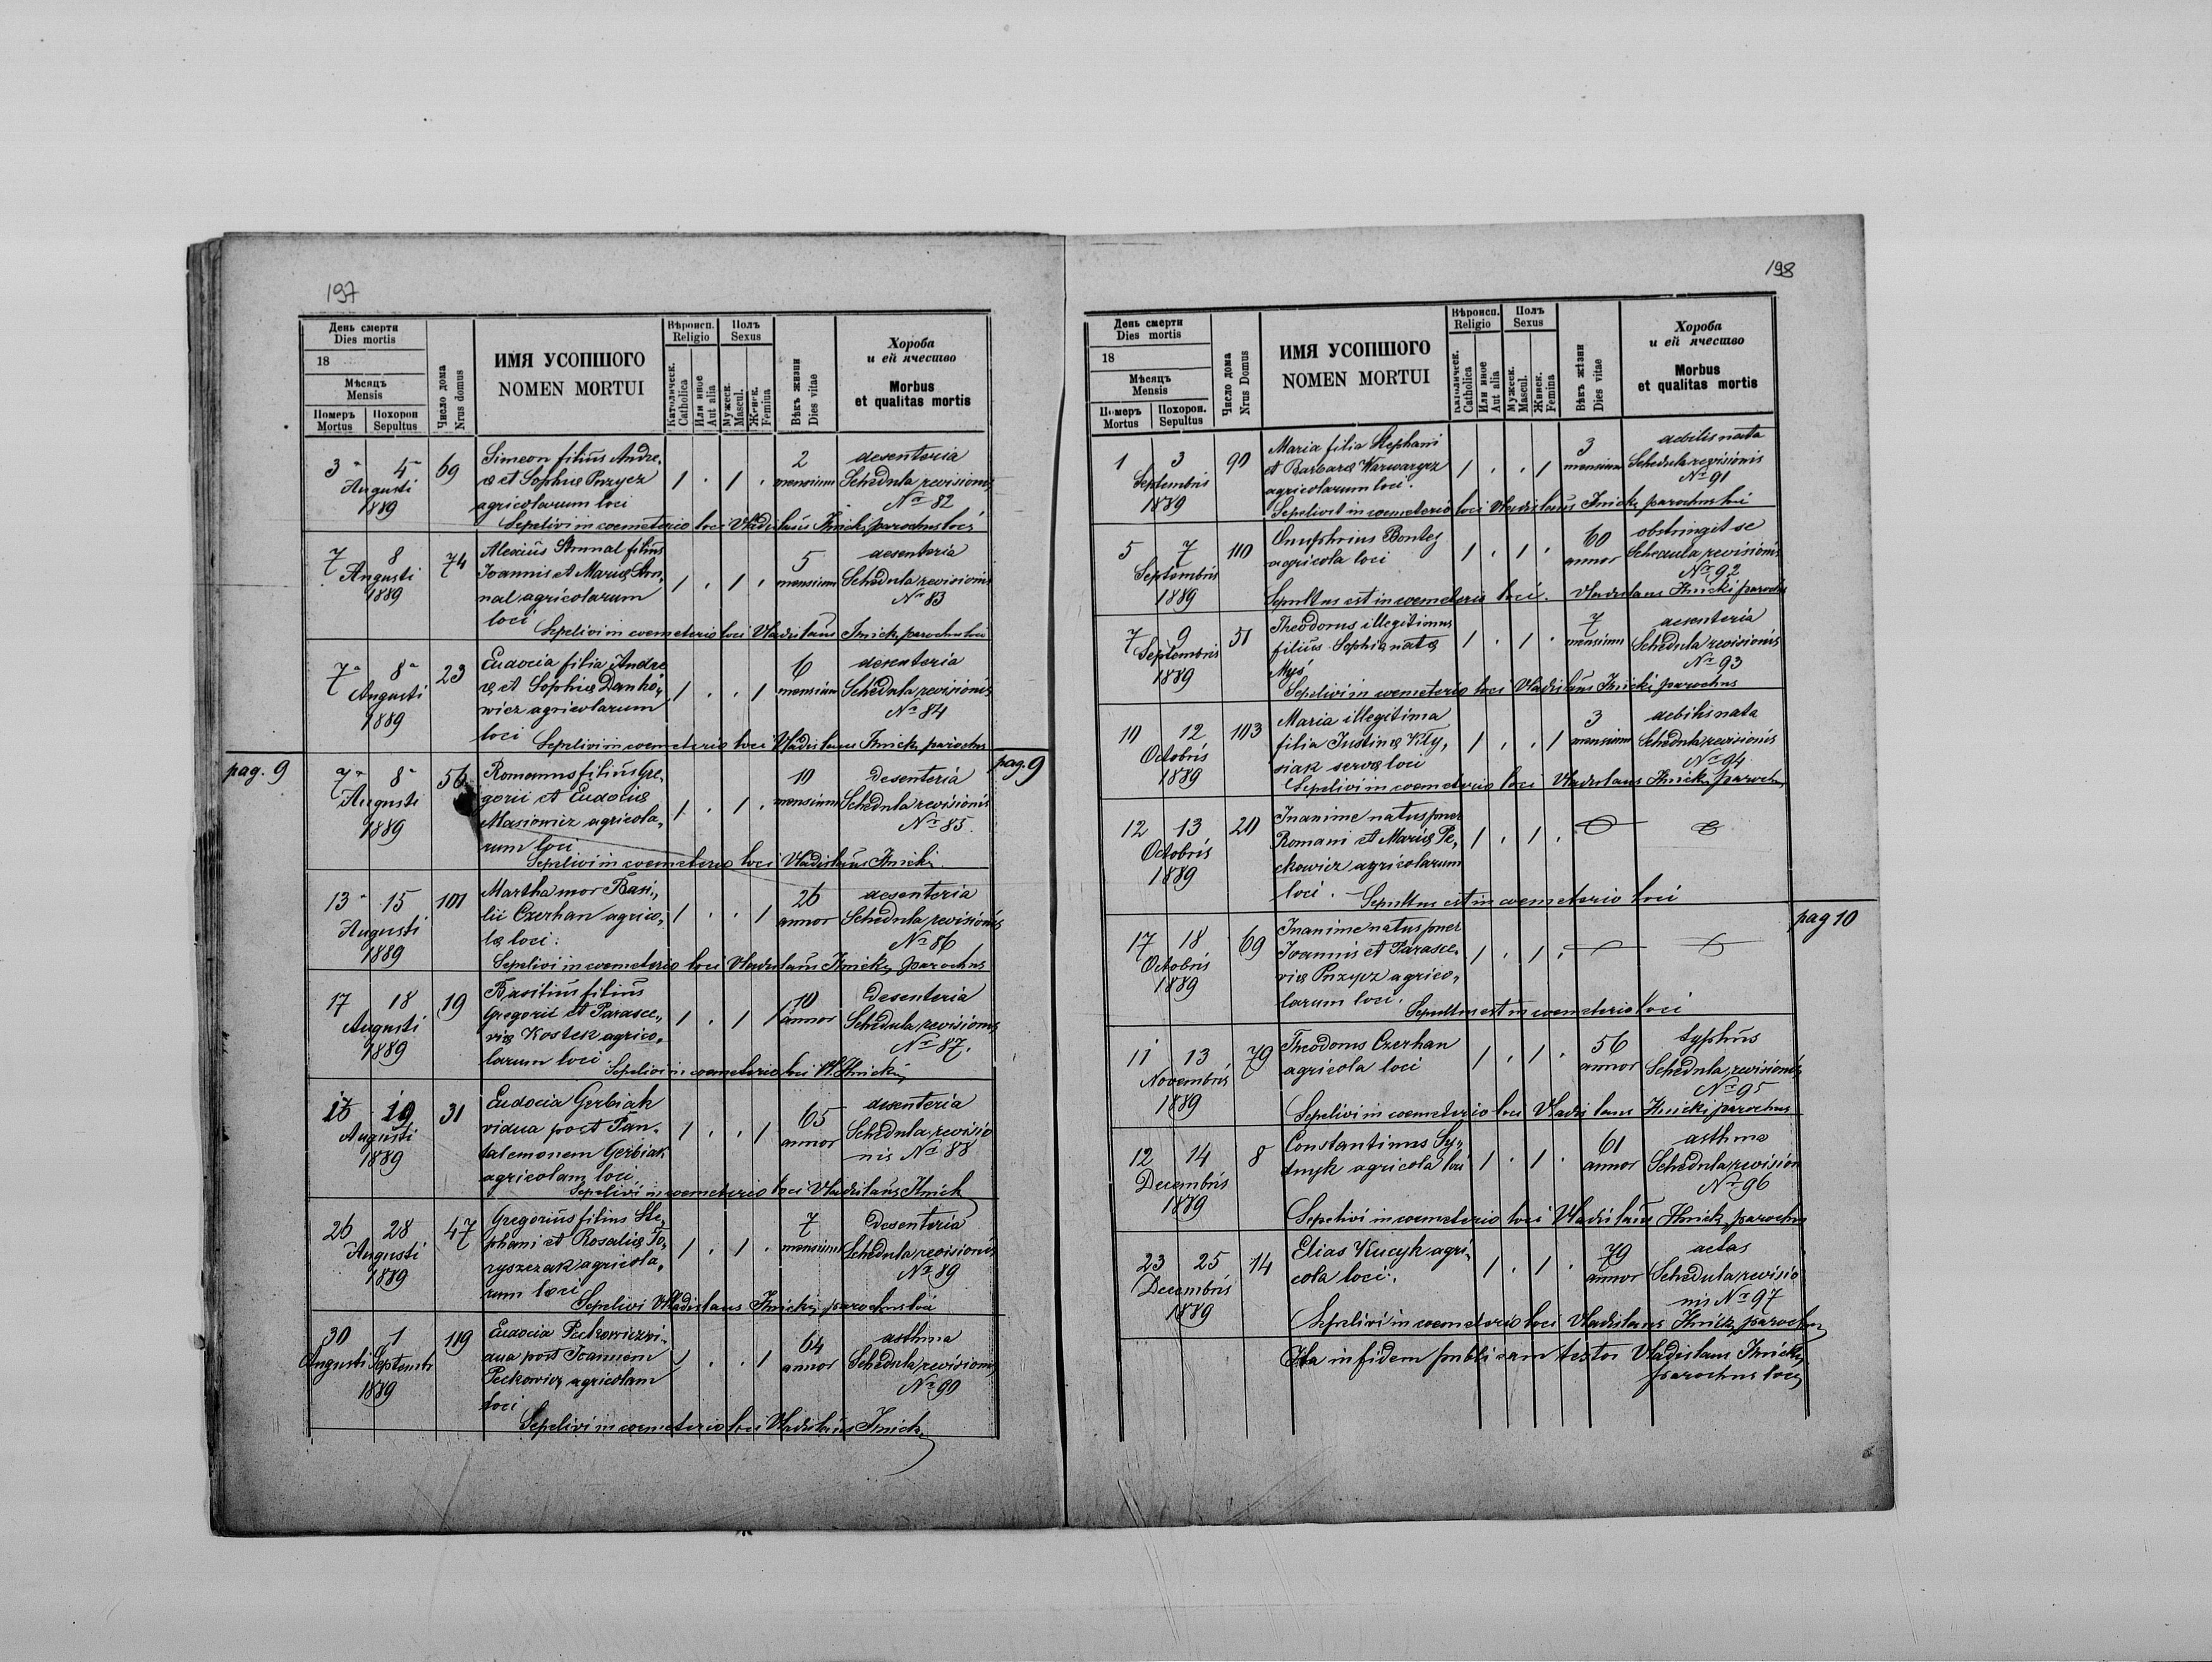 197
День смерти
Dies mortis
18
Мѣсяцъ
Mensis
Померъ
Mortus
Похорон
Sepultus
Число дома
Nrus domus
ИМЯ УСОПШОГО
NOMEN MORTUI
Вѣроисп.
Religio
Католическ.
Catholica
Или иное
Aut alia
Полъ
Sexus
Мужеск.
Mascul.
Женск.
Femina
Вѣкъ жизни
Dies vitae
Хороба
и ей ячество
Morbus
et qualitas mortis
3 4 69 Simeon filius Andre, 2 desenteria
Augusti æ et Sophiæ Puzycz 1 . 1 . mensium Schedula revisionis
1889 agricolarum loci Nr 82
Sepelivi in coemeterio loci Vladislaus Ilnicki parochus loci
7 8 74 Alexius Strunal filius 5 desenteria
Augusti Joannis et Mariæ Stru, 1 . 1 . mensium Schedula revisionis
1889 nal agricolarum Nr 83
loci Sepelivi in coemeterio loci Vladislaus Ilnicki parochus loci
7 8 23 Eudocia filia Andre 6 desenteria
Augusti æ et Sophiæ Danko, 1 . . 1 mensium Schedula revisionis
1889 wicz agricolarum Nr 84
loci Sepelivi in coemeterio loci Vladislaus Ilnicki parochus
pag. 9 7 8 56 Romanus filius Gre, 10 desenteria pag. 9
Augusti gorii et Eudociæ 1 . 1 . mensium Schedula revisionis
1889 Masiowicz agricola, Nr 85.
rum loci
Sepelivi in coemeterio loci Vladislaus Ilnicki
13 15 101 Martha uxor Basi, 26 desenteria
Augusti lii Czerhan agrico, 1 . . 1 annor Schedula revisionis
1889 læ loci. Nr 86
Sepelivi in coemeterio loci Vladislaus Ilnicki parochus
17 18 19 Basilius filius 10 desenteria
Augusti Gregorii et Parasce, 1 . 1 1 annor Schedula revisionis
1889 viæ Kostek agrico, Nr 87.
larum loci Sepelivi in coemeterio loci Vl. Ilnicki
19 31 Eudocia Gerbiak 65 desenteria
Augusti vidua post Pan, 1 . . 1 annor Schedula revisio
1889 talemonem Gerbiak nis Nr 88
agricolam loci
Sepelivi in coemeterio loci Vladislaus Ilnicki
26 28 47 Gregorius filius Ste, 7 desenteria
Augusti phani et Rosaliæ To, 1 . 1 . mensium Schedula revisionis
1889 ryszczak agricola, Nr 89
rum loci
Sepelivi Vladislaus Ilnicki parochus loci
30 1 119 Eudocia Peckowicz vi, 64 asthma
Augusti Septemb dua post Joannem 1 . . 1 annor Schedula revisionis
1889 Peckowicz agricolam Nr 90
loci
Sepelivi in coemeterio loci Vladislaus Ilnicki
198
День смерти
Dies mortis
18
Мѣсяцъ
Mensis
Померъ
Mortus
Похорон.
Sepultus
Число дома
Nrus Domus
ИМЯ УСОПШОГО
NOMEN MORTUI
Вѣроисп.
Religio
Католическ.
Catholica
Или иное
Aut alia
Полъ
Sexus
Мужеск.
Mascul.
Женск.
Femina
Вѣкъ жѣзни
Dies vitae
Хороба
и ей ячество
Morbus
et qualitas mortis
1 3 90 Maria filia Stephani 3 debilis nata
Septembris et Barbaræ Warwarycz 1 . . 1 mensium Schedula revisionis
1889 agricolarum loci. Nr 91
Sepelivit in coemeterio loci Vladislaus Ilnicki parochus loci
5 7 110 Onuphrius Bontej 60 obstringit se
Septembris agricola loci 1 . 1 . annor Schedula revisionis
1889 Nr 92
Sepultus est in coemeterio loci. Vladislaus Ilnicki parochus
7 9 51 Theodorus illegitimus 7 desenteria
Septembris filius Sophiæ natæ 1 . 1 . mensium Schedula revisionis
1889 Myś Nr 93
Sepelivi in coemeterio loci Vladislaus Ilnicki parochus
10 12 103 Maria illegitima 3 debilis nata
Octobris filia Justinæ Kly, 1 . . 1 mensium Schedula revisionis
1889 siak servæ loci Nr 94
Sepelivi in coemeterio loci Vladislaus Ilnicki paroch
12 13 20 Inanime natus puer
Octobris Romani et Mariæ Pe, 1 . 1 .
1889 ckowicz agricolarum
loci. Sepultus est in coemeterio loci
pag 10
17 18 69 Inanime natus puer
Octobris Joannis et Parasce, 1 . 1 .
1889 viæ Puzycz agrico,
larum loci.
Sepultus est in coemeterio loci
11 13 79 Theodorus Czerhan 56 typhus
Novembris agricola loci 1 . 1 . annor Schedula revisionis
1889 Nr 95
Sepelivi in coemeterio loci Vladislaus Ilnicki parochus
12 14 8 Constantinus Sy, 61 asthma
Decembris tnyk agricola loci 1 . 1 . annor Schedula revision
1889 Nr 96
Sepelivi in coemeterio loci Vladislaus Ilnicki parochus
23 25 14 Elias Kucyk agri, 79 aetas
Decembris cola loci. 1 . 1 . annor Schedula revisio
1889 nis Nr 97
Sepelivi in coemeterio loci Vladislaus Ilnicki parochus
Ita in fidem publicam testor Vladislaus Ilnicki
parochus loci